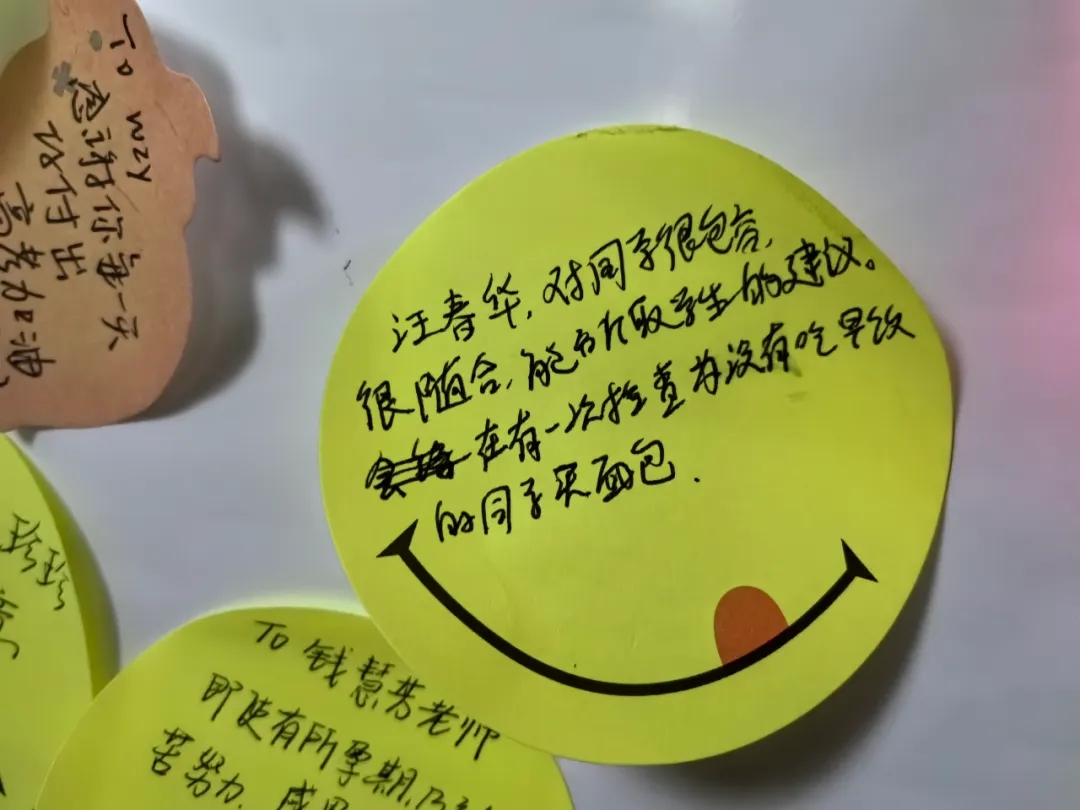 汪春华，对同学很包容，
很随合，能够听取学生的建议。
在有一次检查为没有吃早饭
的同学买面包.
To wzy
感谢你每一天
的付出
To 钱慧芳老师
即使有所孕期，
苦努力，感